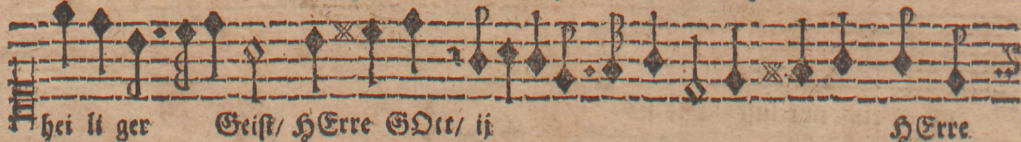 hei li ger Geiſt/ HErre GOtt/ ij HErre